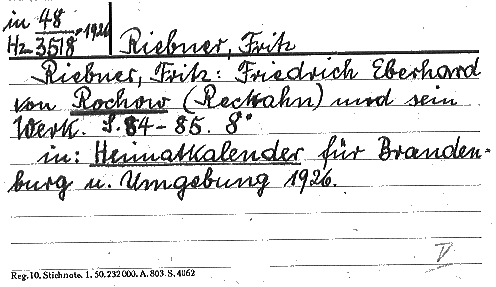 in 48
Hz 3518 -1926
Riebner, Fritz
Riebner, Fritz: Friedrich Eberhard
von Rochow (Reckahn) und sein
Werk. S. 84-85. 8°
in: Heimatkalender für Branden-
burg u. Umgebung 1926.
V
Reg. 10. Stichnote. 1. 50.232000. A. 803. S. 4062